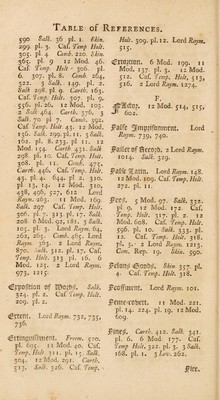 TABLE OF REFERENCES.
590 Salk. 36 pl. 1. Skin.
299. pl. 3. Caf. Temp. Holt.
305. pl. 4 Comb. 220. Skin.
365. pl. 9 12 Mod. 46.
Caf. Temp. Holt. 306. pl.
6. 307. pl. 8. Comb. 264,
322. 2 Salk. 149. pl. 2.
Salk. 298. pl. 9. Carth. 163.
Caf. Temp. Holt. 297. pl. 9.
556. pl. 26. 12 Mod. 103.
2 Salk. 464. Carth. 370. 3
Salk. 70. pl. 7. Comb. 392.
Caf. Temp. Holt. 43. 12 Mod.
236. Salk. 299. pl. 11. 2 Salk.
162. pl. 8. 233. pl. 11. 12
Mod. 154. Carth. 431. Salk.
298. pl. 10. Caf. Temp. Holt.
308. pl. 11. Comb. 475.
Carth. 446. Caf. Temp. Holt.
43. pl. 4. 644. pl. 2. 310.
pl. 13, 14. 12 Mod. 310,
436, 496, 527, 612. Lord
Raym. 263. 11 Mod. 169.
Salk. 297. Caf. Temp. Holt.
306. pl. 7. 313. pl. 17. Salk.
600. 6 Mod. 92, 281. 3 Salk.
105. pl. 3. Lord Raym. 64,
260, 265. Comb. 465. Lord
Raym. 363. 2 Lord Raym.
870. Salk. 312. pl. 17. Caf.
Temp. Holt. 313. pl. 16. 6
Mod. 125. 2 Lord Raym.
973, 1215.
Exposition of Words. Salk.
324. pl. 2. Caf. Temp. Holt.
209. pl. 2.
Extent. Lord Raym. 732, 735,
736.
Extinguishment. Freem. 510.
pl. 695. 12 Mod. 40. Caf.
Temp. Holt. 311. pl. 15. Salk.
304. 12 Mod. 291. Carth.
513. Salk. 326. Caf. Temp.
Holt. 309. pl. 12. Lord Raym.
515.
Extortion. 6 Mod. 199. 11
Mod. 137. pl. 3. 12 Mod.
512. Caf. Temp. Holt. 513,
516. 2 Lord Raym. 1274.
F.
Factor. 12 Mod. 514, 515,
602.
False Imprisonment. Lord
Raym. 739, 740.
Failer of Record. 2 Lord Raym.
1014. Salk. 329.
False Latin. Lord Raym. 148.
12 Mod. 109. Caf. Temp. Holt.
272. pl. 11.
Fees. 5 Mod. 97. Salk. 332.
pl. 9. 12 Mod. 162. Caf.
Temp. Holt. 317. pl. 2. 12
Mod. 608. Caf. Temp. Holt.
596. pl. 10. Salk. 333. pl.
12. Caf. Temp. Holt. 318.
pl. 3. 2 Lord Raym. 1213.
Com. Rep. 19. Skin. 590.
Felons Goods. Skin. 357. pl.
4. Caf. Temp. Holt. 318.
Feoffment. Lord Raym. 101.
Feme-covert. 11 Mod. 221.
pl. 14. 224. pl. 19. 12 Mod.
609.
Fines. Carth. 412. Salk. 341.
pl. 6. 6 Mod. 177. Caf.
Temp. Holt. 322. pl. 3. 3 Salk.
168. pl. 1. 3 Lev. 262.